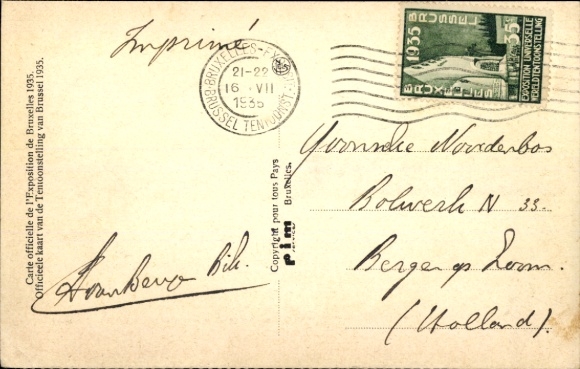 Imprimé
BRUXELLES-EX
21-22
16 VII
1935
BRUSSEL TENTOONST.
1935
BRUSSEL
35c
EXPOSITION UNIVERSELLE
WERELDTENTOONSTELLING
BRUXELLES
1935
Carte officielle de l'Exposition de Bruxelles 1935.
Officieele kaart van de Tentoonstelling van Brussel 1935.
Copyright pour tous Pays
pim
Bruxelles.
Noorderbos
Bolwerk N 33.
Bergen op Zoom.
(Holland).